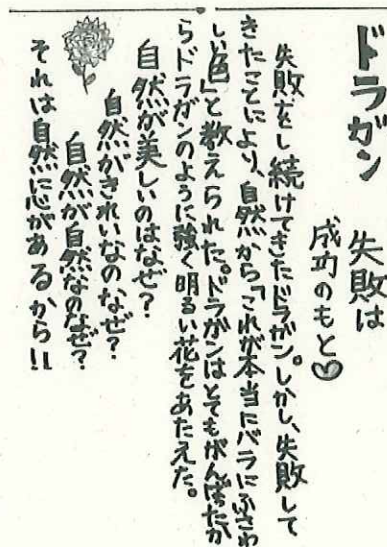 ドラガン
失敗は
成功のもと♡
失敗をし続けてきたドラガン。しかし、失敗して
きたことにより、自然から「これが本当にバラにふさわ
しい色」と教えられた。ドラガンはとてもがんばったか
らドラガンのように強く明るい花をあたえた。
自然が美しいのはなぜ?
自然がきれいなのなぜ?
自然が自然なのなぜ?
それは自然に心があるから!!